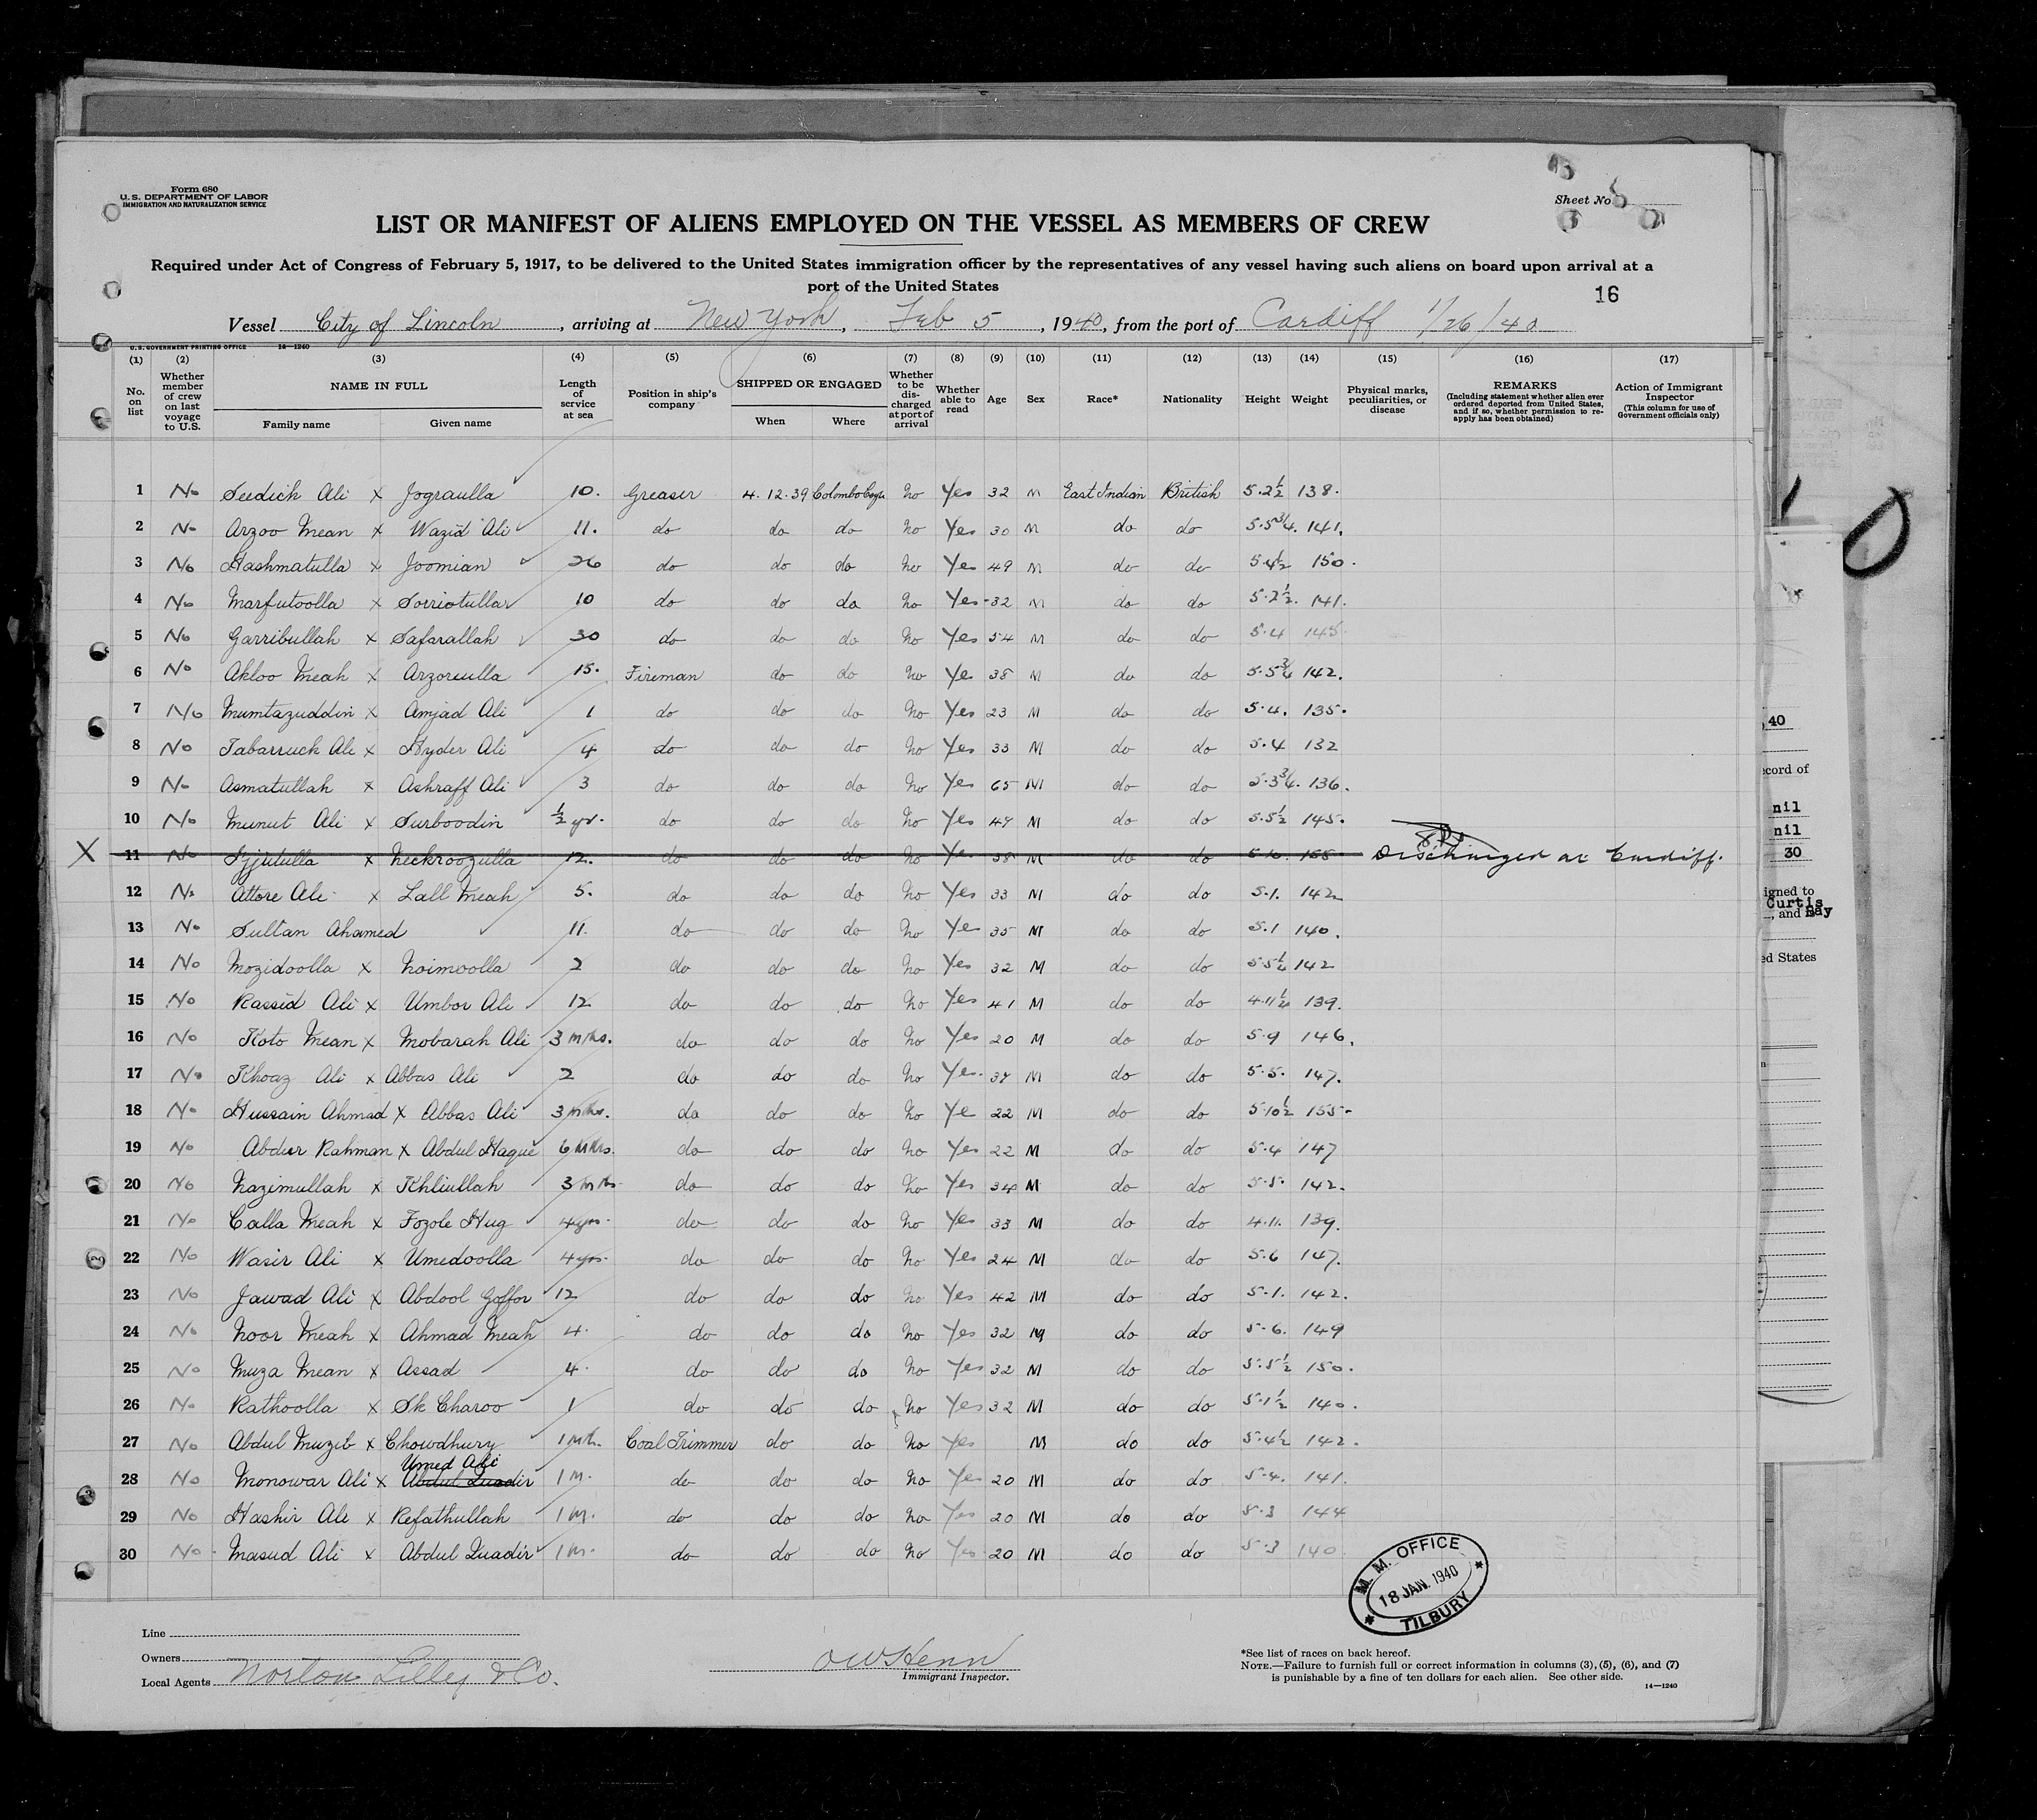 Form 680
U. S. DEPARTMENT OF LABOR
IMMIGRATION AND NATURALIZATION SERVICE
Sheet No.
LIST OR MANIFEST OF ALIENS EMPLOYED ON THE VESSEL AS MEMBERS OF CREW
Required under Act of Congress of February 5, 1917, to be delivered to the United States immigration officer by the representatives of any vessel having such aliens on board upon arrival at a
port of the United States
16
Vessel City of Lincoln, arriving at New York, Feb 5, 1940, from the port of Cardiff 1/26/40
U. S. GOVERNMENT PRINTING OFFICE 14—1240
(1) (2) (3) (4) (5) (6) (7) (8) (9) (10) (11) (12) (13) (14) (15) (16) (17)
No. on list
Whether member of crew on last voyage to U.S.
NAME IN FULL
Family name Given name
Length of service at sea
Position in ship's company
SHIPPED OR ENGAGED
When Where
Whether to be discharged at port of arrival
Whether able to read
Age
Sex
Race*
Nationality
Height
Weight
Physical marks, peculiarities, or disease
REMARKS
(Including statement whether alien ever ordered deported from United States, and if so, whether permission to reapply has been obtained)
Action of Immigrant Inspector
(This column for use of Government officials only)
1 No Seedick Ali x Jograulla 10. Greaser 4.12.39 Colombo No Yes 32 M East Indian British 5.2½ 138.
2 No Arzoo Mean x Wazid Ali 11. do do do No Yes 30 M do do 5.5¾. 141.
3 No Hashmatulla x Joomian 26 do do do No Yes 49 M do do 5.4½ 150.
4 No Marfutoolla x Sorriotulla 10 do do do No Yes 32 M do do 5.2½. 141.
5 No Garribullah x Safarallah 30 do do do No Yes 54 M do do 5.4 145
6 No Akloo Meah x Arzoreulla 15. Fireman do do No Yes 38 M do do 5.5¾ 142.
7 No Mumtazuddin x Amjad Ali 1 do do do No Yes 23 M do do 5.4. 135.
8 No Tabarruck Ali x Hyder Ali 4 do do do No Yes 33 M do do 5.4 132
9 No Asmatullah x Ashraff Ali 3 do do do No Yes 65 M do do 5.3¾. 136.
10 No Munut Ali x Surboodin ½ yr. do do do No Yes 47 M do do 5.5½ 145.
X 11 No Ijjutulla x Neckroozulla 12. do do do No Yes 38 M do do 155 Discharged at Cardiff.
12 No Attore Ali x Lall Meah 5. do do do No Yes 33 M do do 5.1. 142
13 No Sultan Ahamed 11. do do do No Yes 35 M do do 5.1 140.
14 No Mozidoolla x Noimoolla 2 do do do No Yes 32 M do do 5.5¼ 142
15 No Rassid Ali x Umbor Ali 12 do do do No Yes 41 M do do 4.11½ 139.
16 No Koto Mean x Mobarah Ali 3 mths. do do do No Yes 20 M do do 5.9 146.
17 No Khoaz Ali x Abbas Ali 2 do do do No Yes 37 M do do 5.5. 147.
18 No Hussain Ahmad x Abbas Ali 3 mths. do do do No Ye 22 M do do 5.10½ 155
19 No Abdur Rahman x Abdul Haque 6 mths. do do do No Yes 22 M do do 5.4 147
20 No Nazimullah x Khliullah 3 mths do do do No Yes 34 M do do 5.5. 142.
21 No Calla Meah x Fozole Hug 4 yrs. do do do No Yes 33 M do do 4.11. 139.
22 No Wasir Ali x Umedoolla 4 yrs. do do do No Yes 24 M do do 5.6 147.
23 No Jawad Ali x Abdool Goffor 12 do do do No Yes 42 M do do 5.1. 142.
24 No Noor Meah x Ahmad Meah 4. do do do No Yes 32 M do do 5.6. 149
25 No Muza Mean x Assad 4. do do do No Yes 32 M do do 5.5½ 150.
26 No Rathoolla x Sk Charoo 1 do do do No Yes 32 M do do 5.1½ 140.
27 No Abdul Muzib x Chowdhury 1 Mth. Coal Trimmer do do No Yes M do do 5.4½ 142.
Umed Ali
28 No Monowar Ali x Abdul Quadir 1 M. do do do No Yes 20 M do do 5.4. 141.
29 No Hashir Ali x Refathullah 1 M. do do do No Yes 20 M do do 5.3 144
30 No Masud Ali x Abdul Quadir 1 M. do do do No Yes 20 M do do 5.3 140
M. M. OFFICE
18 JAN. 1940
TILBURY
Line
Owners
Local Agents Norton Lilley & Co.
OW Henn
Immigrant Inspector.
*See list of races on back hereof.
NOTE.—Failure to furnish full or correct information in columns (3), (5), (6), and (7)
is punishable by a fine of ten dollars for each alien. See other side.
14—1240
40
ecord of
nil
nil
30
igned to
Curtis
, and Bay
ed States